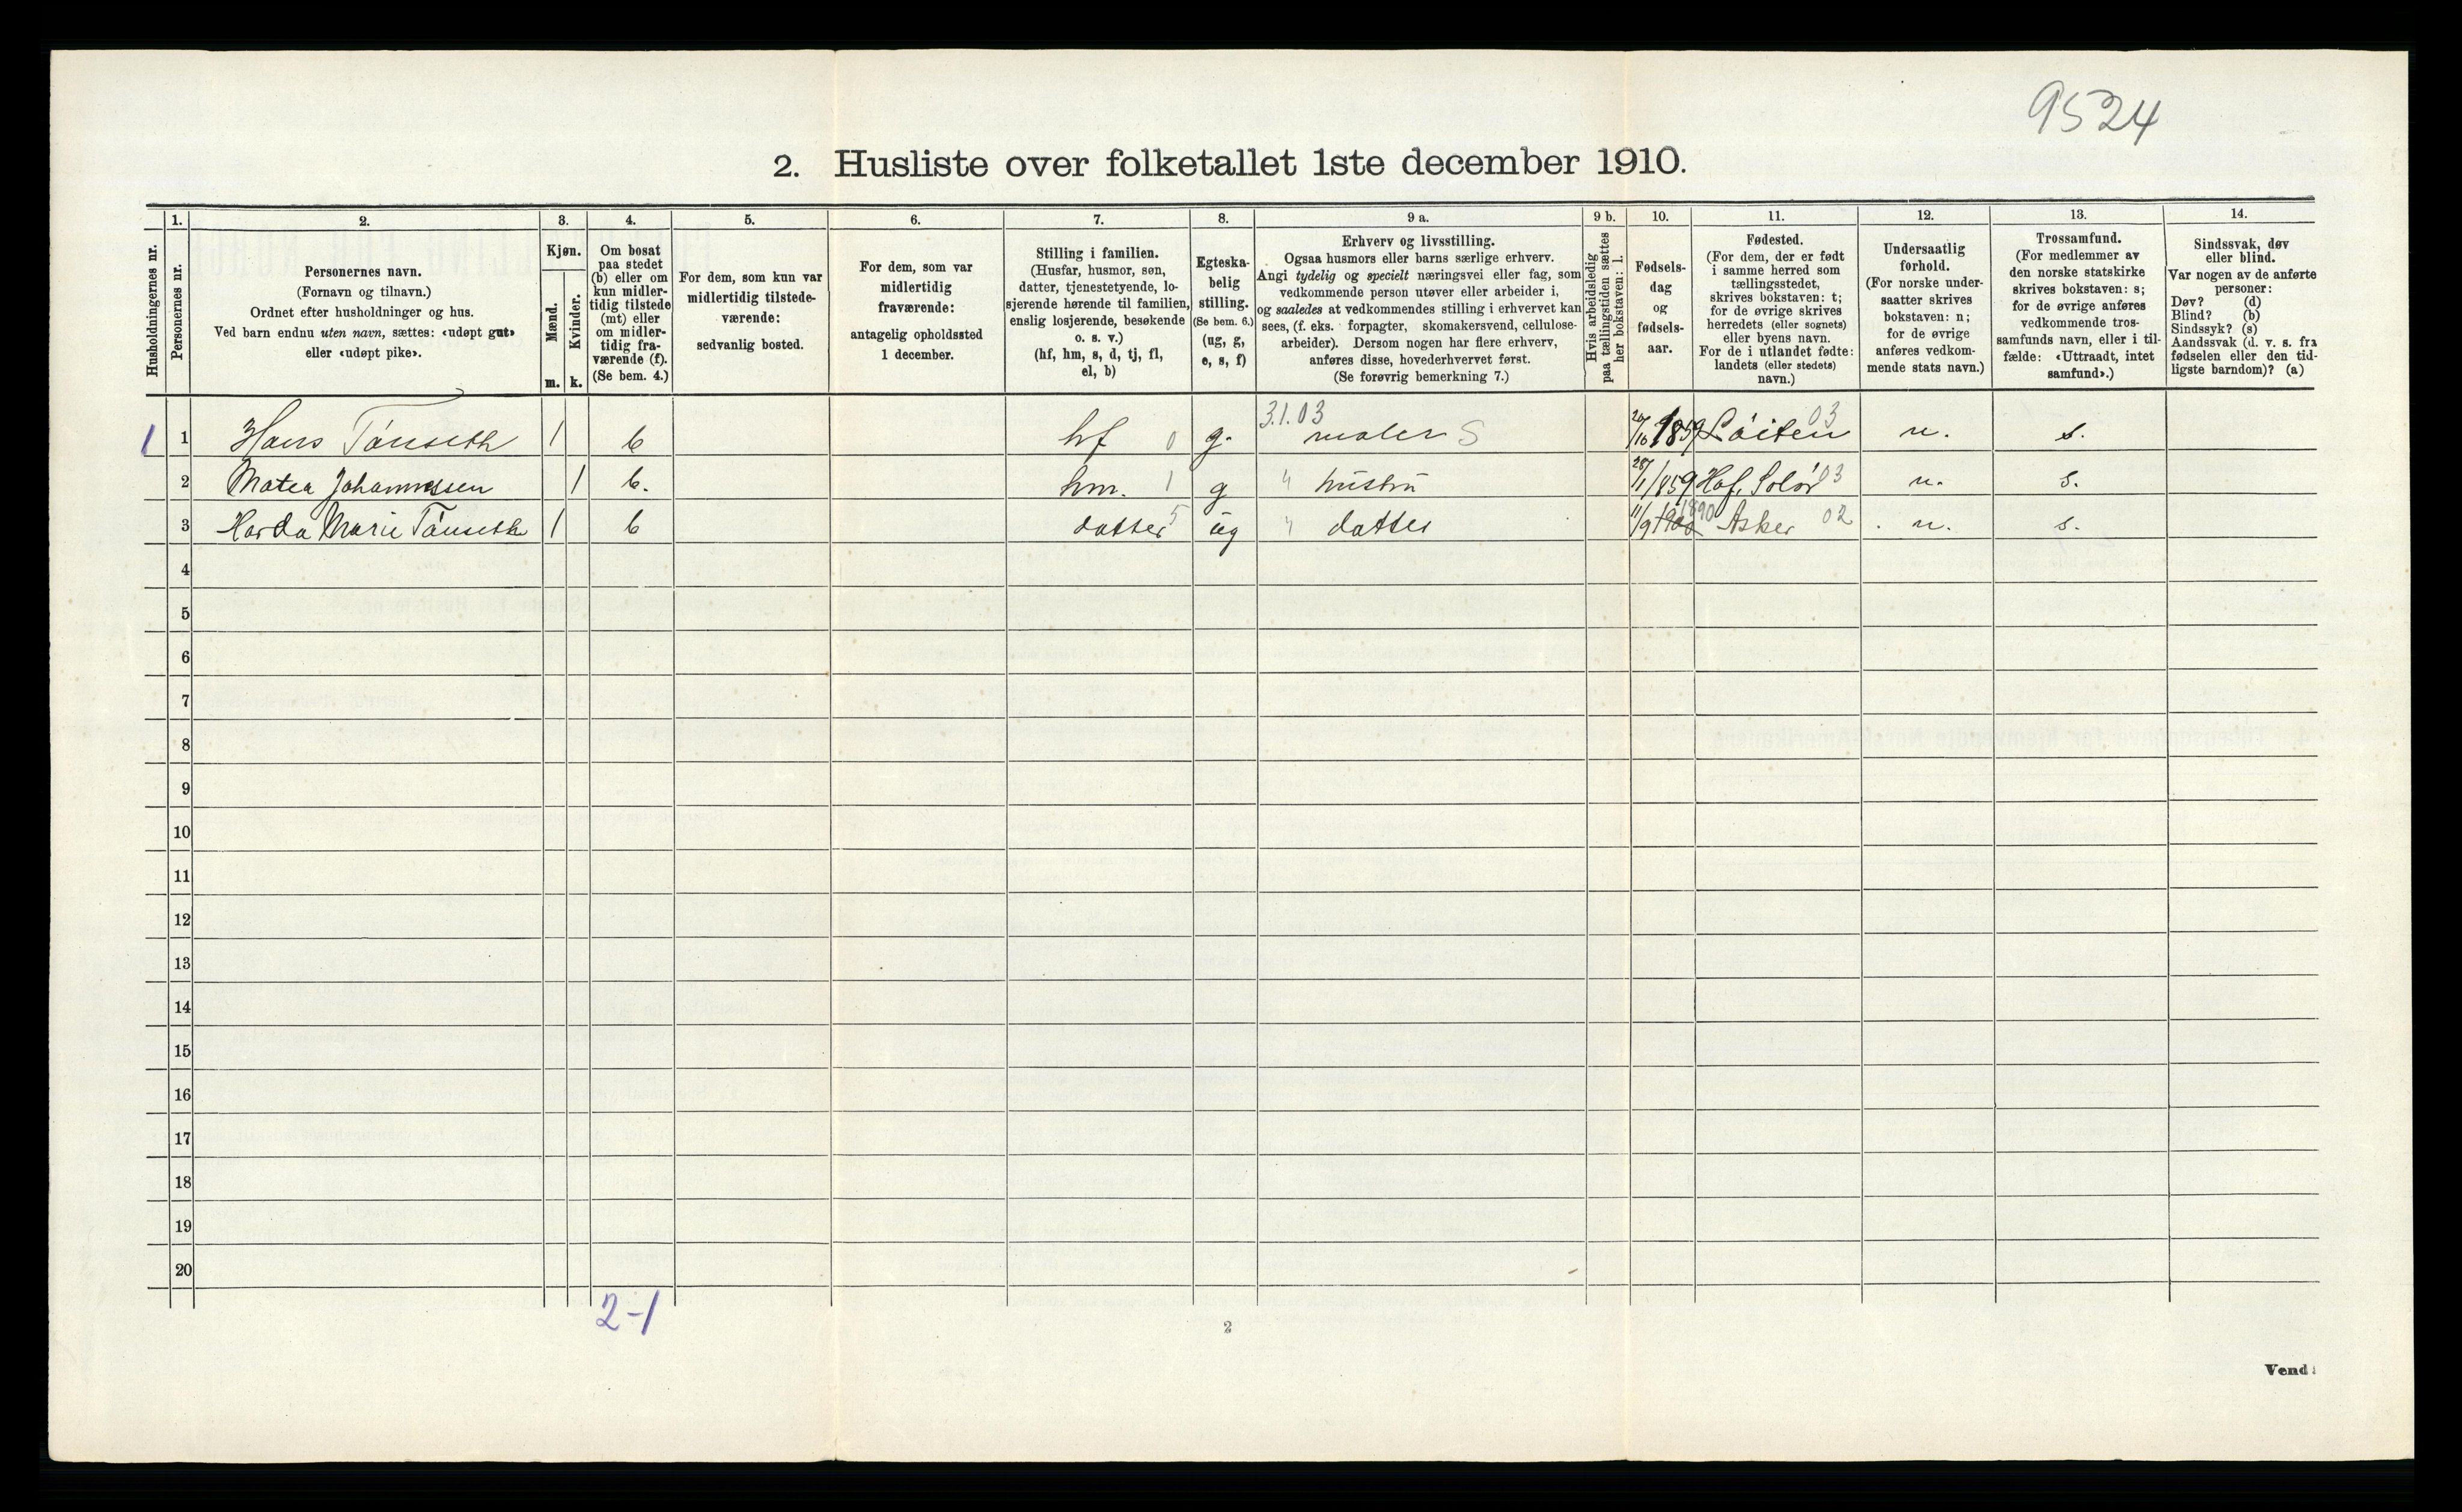 9524
2. Husliste over folketallet 1ste december 1910.
Husholdningernes nr.
1.
Personernes nr.
2.
Personernes navn.
(Fornavn og tilnavn.)
Ordnet efter husholdninger og hus.
Ved barn endnu uten navn, sættes: «udøpt gut»
eller «udøpt pike».
3.
Kjøn.
Mænd.
Kvinder.
m. k.
4.
Om bosat
paa stedet
(b) eller om
kun midler-
tidig tilstede
(mt) eller
om midler-
tidig fra-
værende (f).
(Se bem. 4.)
5.
For dem, som kun var
midlertidig tilstede-
værende:
sedvanlig bosted.
6.
For dem, som var
midlertidig
fraværende:
antagelig opholdssted
1 december.
7.
Stilling i familien.
(Husfar, husmor, søn,
datter, tjenestetyende, lo-
sjerende hørende til familien,
enslig losjerende, besøkende
o. s. v.)
(hf, hm, s, d, tj, fl,
el, b)
8.
Egteska-
belig
stilling.
(Se bem. 6.)
(ug, g,
e, s, f)
9 a.
Erhverv og livsstilling.
Ogsaa husmors eller barns særlige erhverv.
Angi tydelig og specielt næringsvei eller fag, som
vedkommende person utøver eller arbeider i,
og saaledes at vedkommendes stilling i erhvervet kan
sees, (f. eks. forpagter, skomakersvend, cellulose-
arbeider). Dersom nogen har flere erhverv,
anføres disse, hovederhvervet først.
(Se forøvrig bemerkning 7.)
9 b.
Hvis arbeidsledig
paa tællingstiden sættes
her bokstaven: l.
10.
Fødsels-
dag
og
fødsels-
aar.
11.
Fødested.
(For dem, der er født
i samme herred som
tællingsstedet,
skrives bokstaven: t;
for de øvrige skrives
herredets (eller sognets)
eller byens navn.
For de i utlandet fødte:
landets (eller stedets)
navn.)
12.
Undersaatlig
forhold.
(For norske under-
saatter skrives
bokstaven: n;
for de øvrige
anføres vedkom-
mende stats navn.)
13.
Trossamfund.
(For medlemmer av
den norske statskirke
skrives bokstaven: s;
for de øvrige anføres
vedkommende tros-
samfunds navn, eller i til-
fælde: «Uttraadt, intet
samfund».)
14.
Sindssvak, døv
eller blind.
Var nogen av de anførte
personer:
Døv? (d)
Blind? (b)
Sindssyk? (s)
Aandssvak (d. v. s. fra
fødselen eller den tid-
ligste barndom)? (a)
1 1 Hans Tónseth 1 b hf 0 g. 31.03 maler S 1859 Löiten 03 n. s.
2 Matea Johannessen 1 b. hm. 1 g " hustru 28/1 1859 Hof, Solör 03 n. s.
3 Marie Tónseth 1 b datter 5 ug " datter 11/9 1890 Asker 02 n. s.
4
5
6
7
8
9
10
11
12
13
14
15
16
17
18
19
20
2-1
2
Vend!